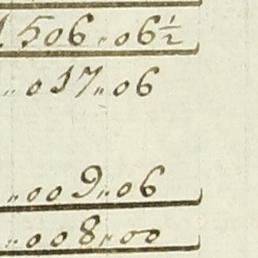 1506„06½
„017„06
„009„06
„008„00